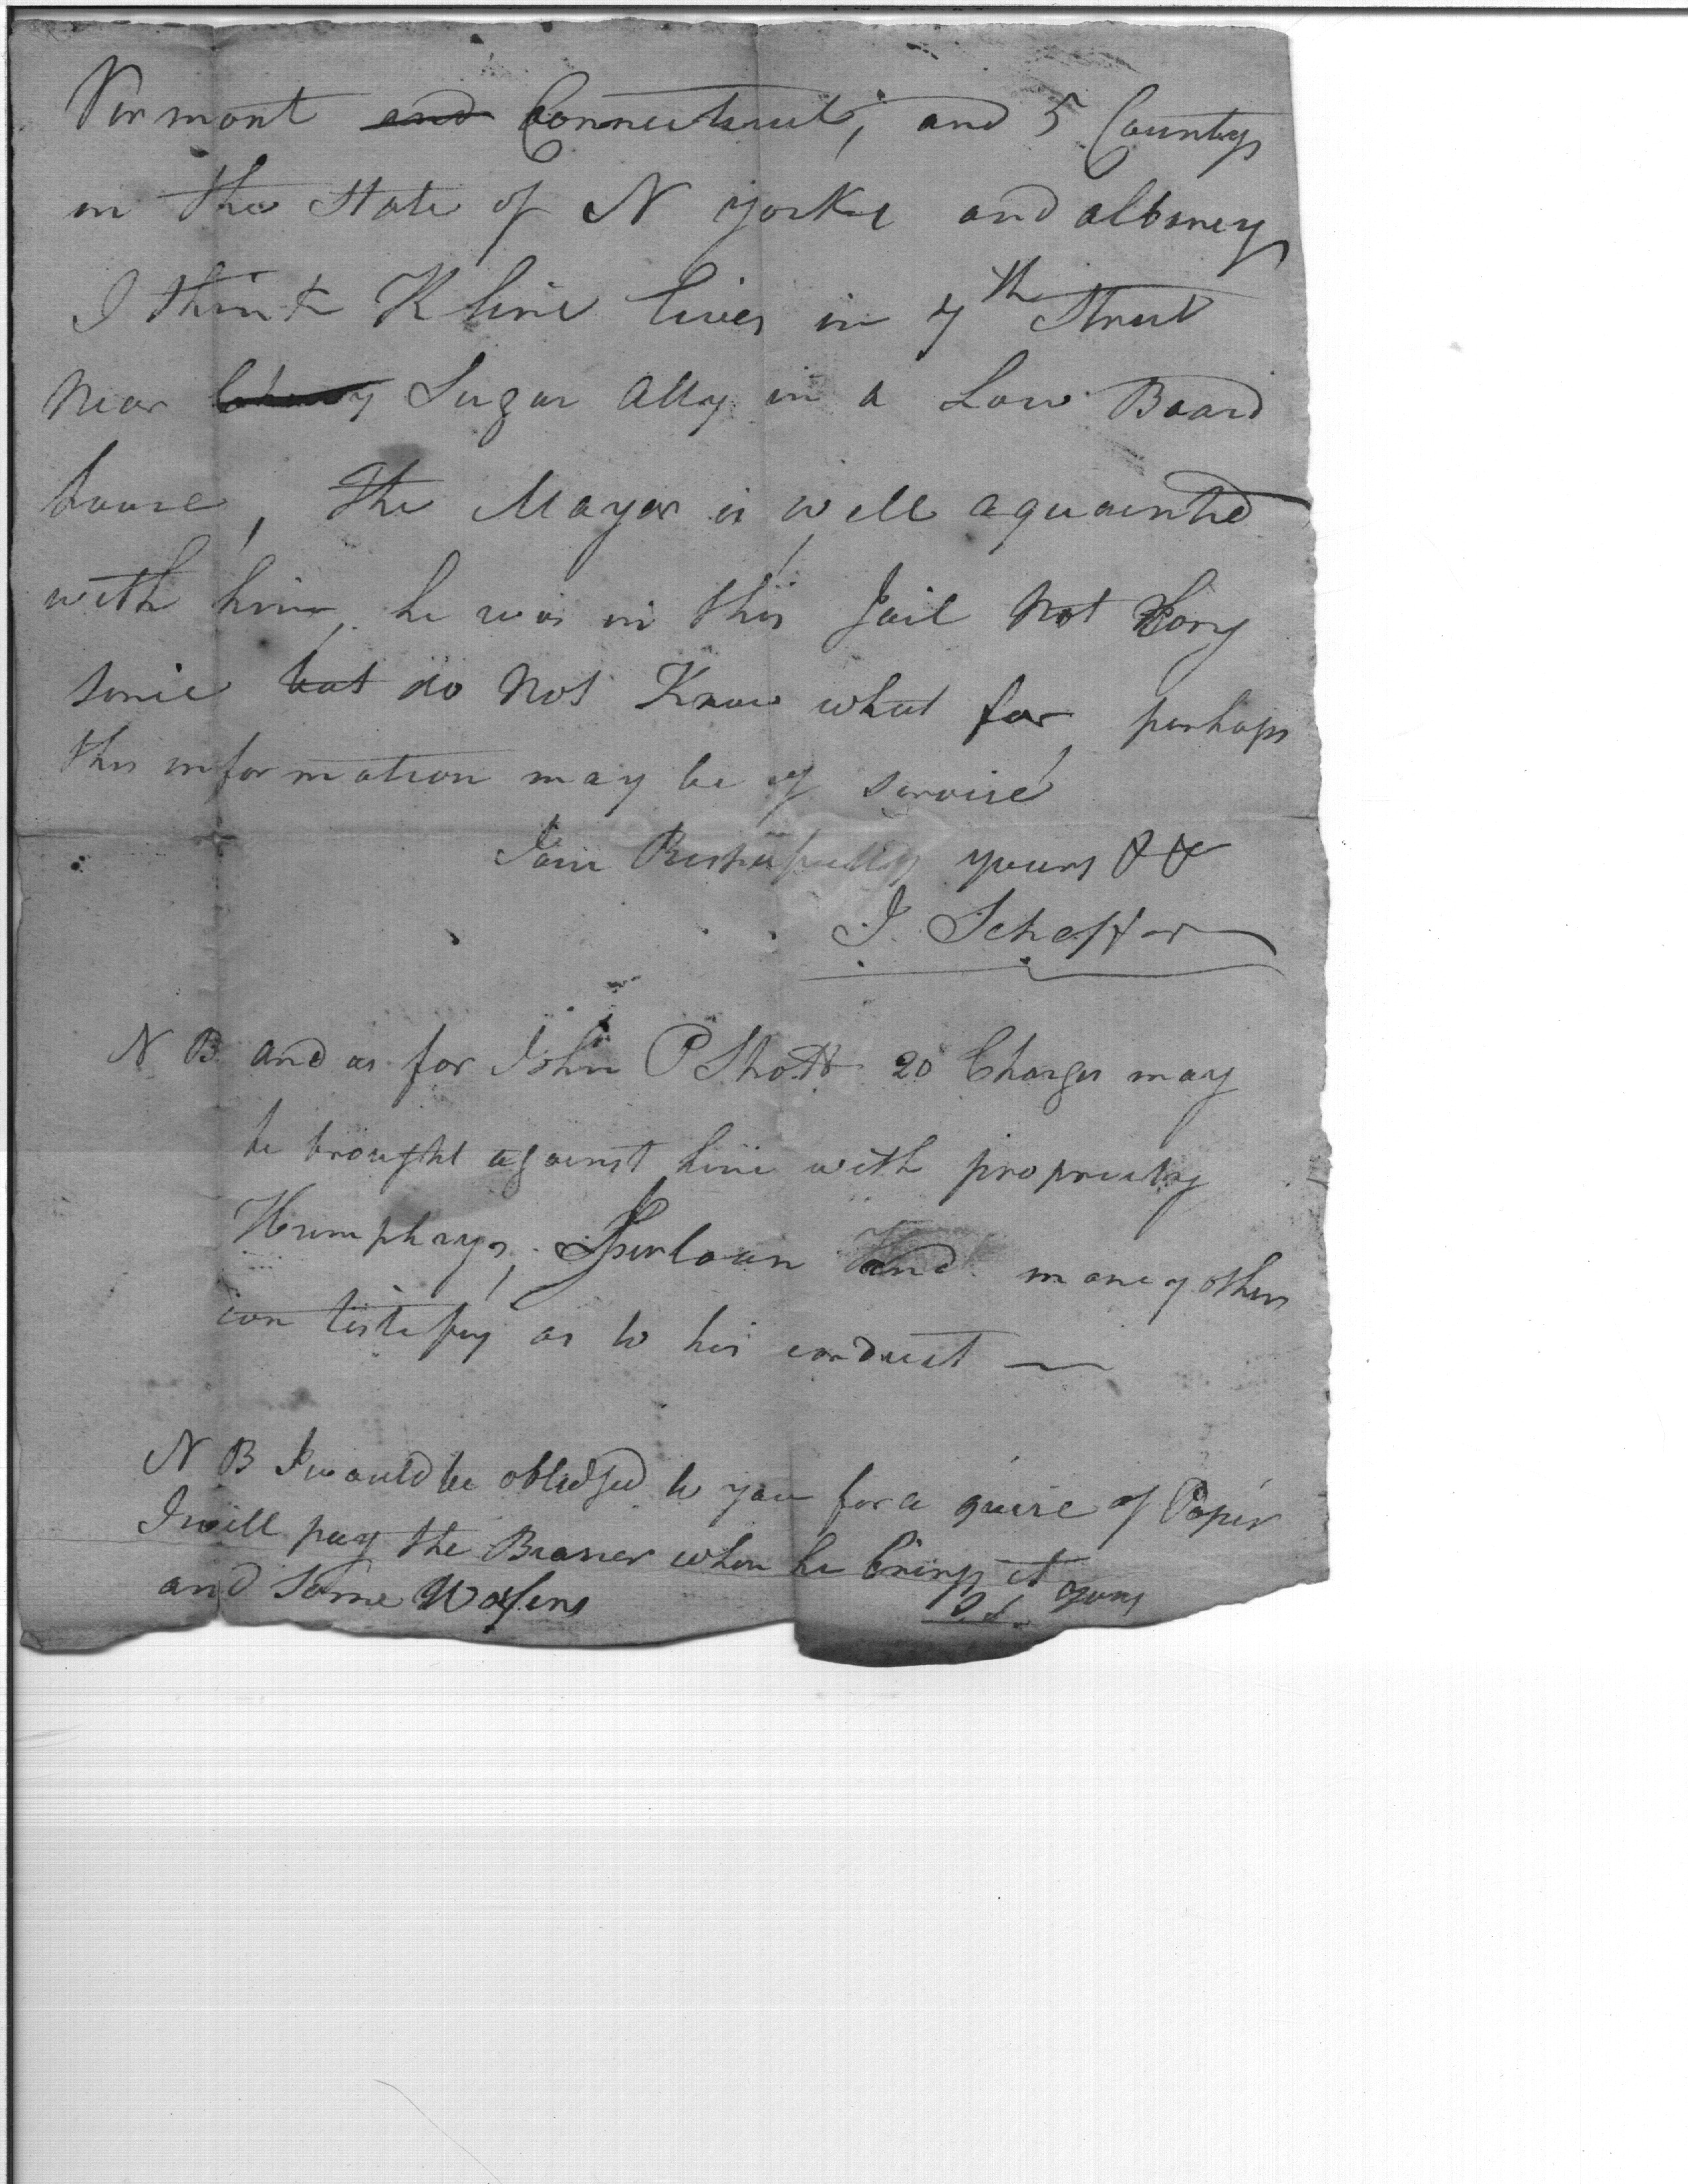 Vermont and Connecticut, and 5 Countys
in the State of N yorke and albaney
I think Kline lives in 7th Street
Near Sugar Ally in a Low Board
house, The Mayor is well aquainted
with him, he was in this Jail Not Long
sinie but do Not Know what for, perhaps
this information may be of servise
I am Respectfully yours &&
J. Scheffer
N B and as for John P Shott 20 Charges may
be brought against him with propriety
Humphrys, and maney others
can testefey as to his conduct —
N B I would be oblidged to you for a quire of Paper
I will pay the Bearer when he brings it
and Some Wafers yours
J S